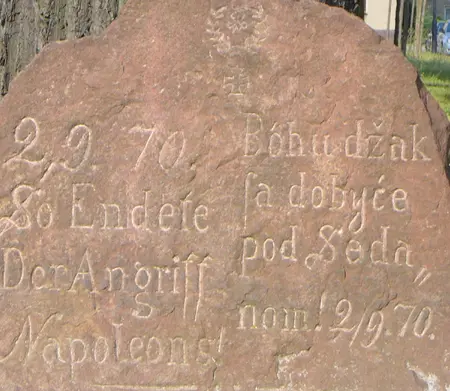 2,9. 70,
So Endete
Der Angriff
Napoleons!
Bóhu džak
ſa dobyće
pod Seda„
nom! 2/9.70.